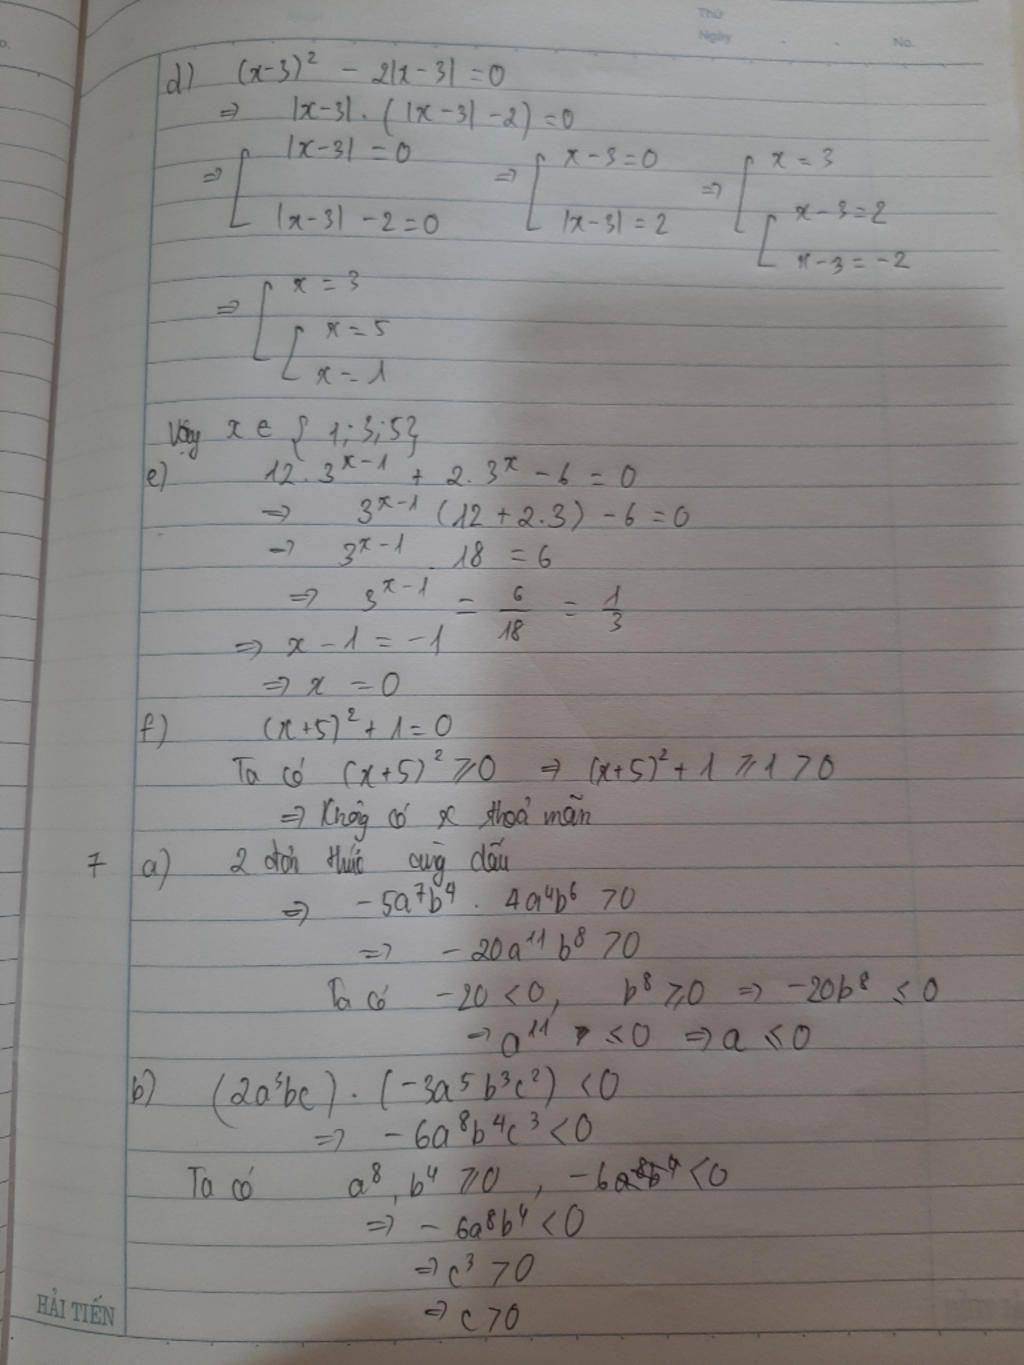 Thứ
Ngày
No.
d) (x-3)² - 2|x-3| = 0
⇒ |x-3| . (|x-3| - 2) = 0
⇒ [ |x-3| = 0 ⇒ [ x-3=0 ⇒ [ x = 3
|x-3| - 2 = 0 |x-3| = 2 [ x-3=2
x-3=-2
⇒ [ x = 3
[ x = 5
x = 1
Vậy x ∈ { 1; 3; 5}
e) 12.3^{x-1} + 2.3^x - 6 = 0
⇒ 3^{x-1} (12 + 2.3) - 6 = 0
⇒ 3^{x-1} . 18 = 6
⇒ 3^{x-1} = 6/18 = 1/3
⇒ x - 1 = -1
⇒ x = 0
f) (x+5)² + 1 = 0
Ta có (x+5)² ⩾ 0 ⇒ (x+5)² + 1 ⩾ 1 > 0
⇒ Không có x thoả mãn
7 a) 2 đơn thức cùng dấu
⇒ -5a⁷b⁴ . 4a⁴b⁶ > 0
⇒ -20a¹¹b⁸ > 0
Ta có -20 < 0, b⁸ ⩾ 0 ⇒ -20b⁸ ⩽ 0
⇒ a¹¹ ⩽ 0 ⇒ a ⩽ 0
b) (2a³bc) . (-3a⁵b³c²) < 0
⇒ -6a⁸b⁴c³ < 0
Ta có a⁸, b⁴ ⩾ 0, -6a⁸b⁴ < 0
⇒ -6a⁸b⁴ < 0
⇒ c³ > 0
⇒ c > 0
HẢI TIẾN